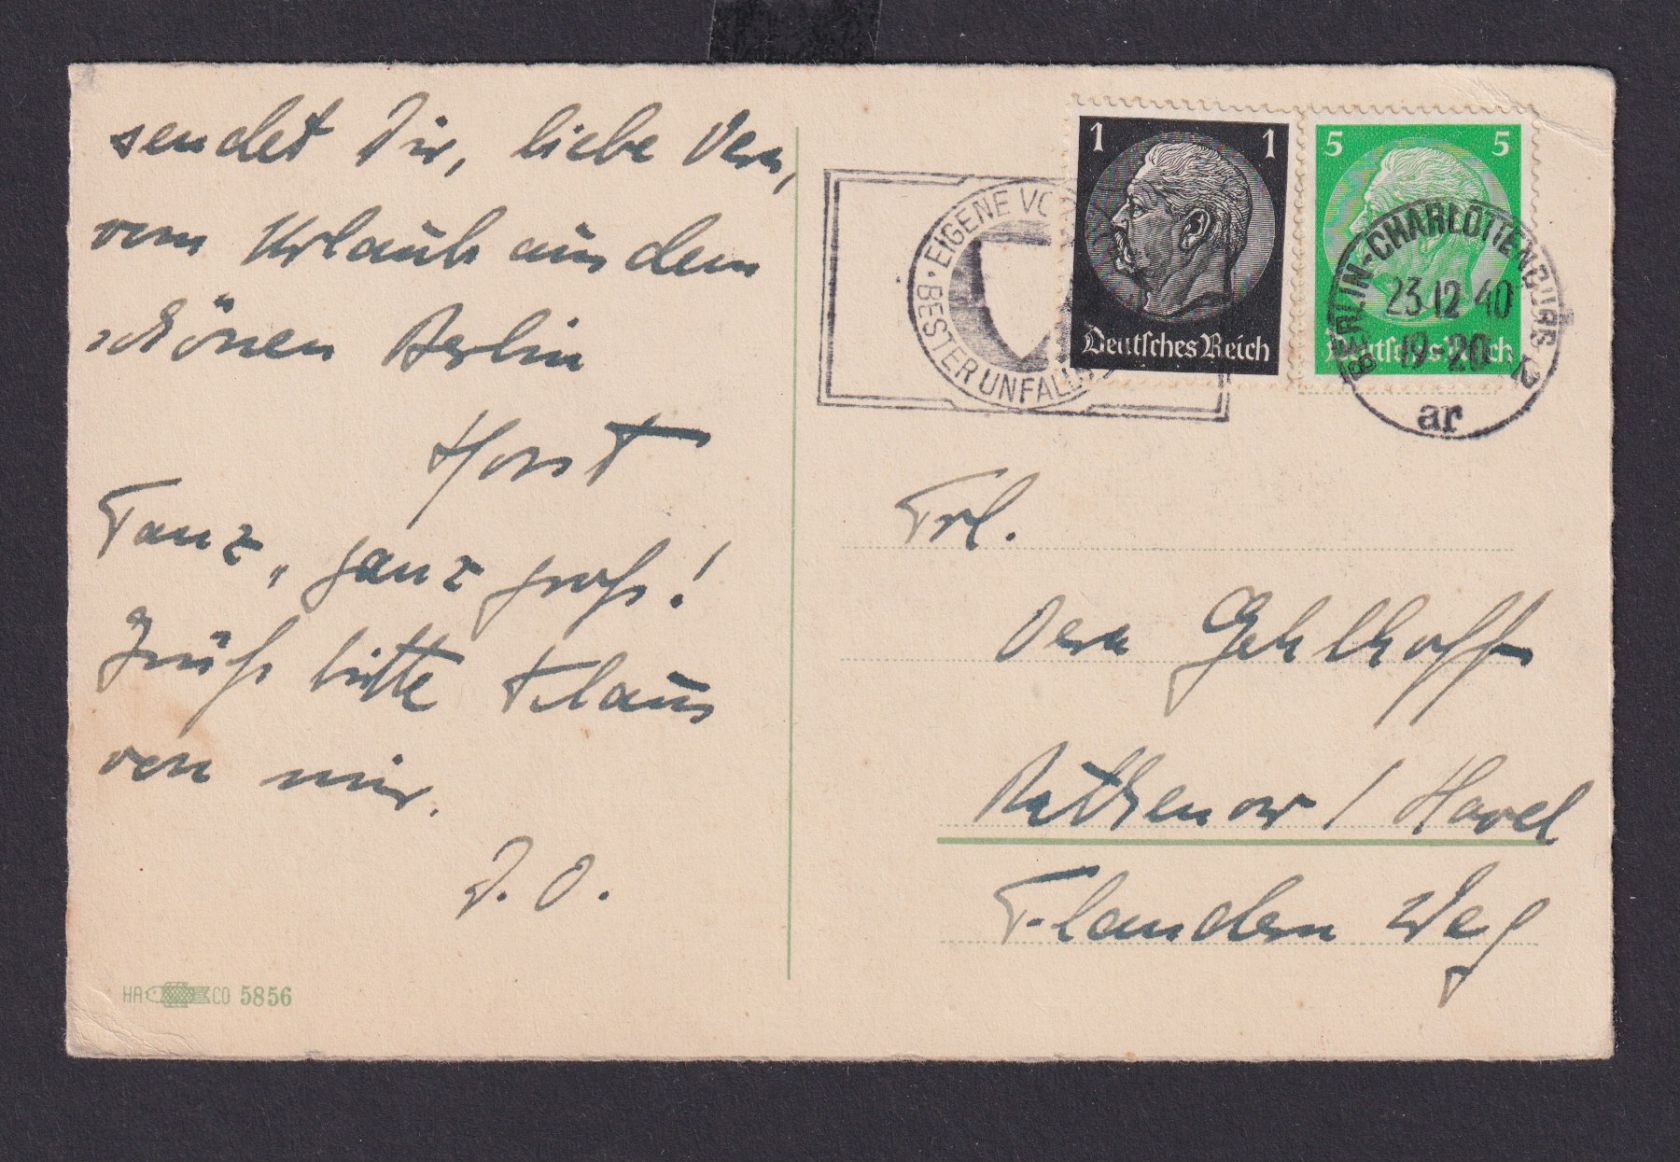 sendet Dir, liebe Vera,
vom Urlaub aus dem
schönen Berlin
Horst
Tanz „ganz groß!
Grüß bitte Klaus
von mir.
D. O.
HA CO 5856
EIGENE VO
BESTER UNFALL
1 1
Deutsches Reich
5 5
Deutsches Reich
BERLIN-CHARLOTTENBURG 2
23.12.40
19-20
ar
Frl.
Vera Gehlhoff
Rathenow / Havel
Flandern Weg